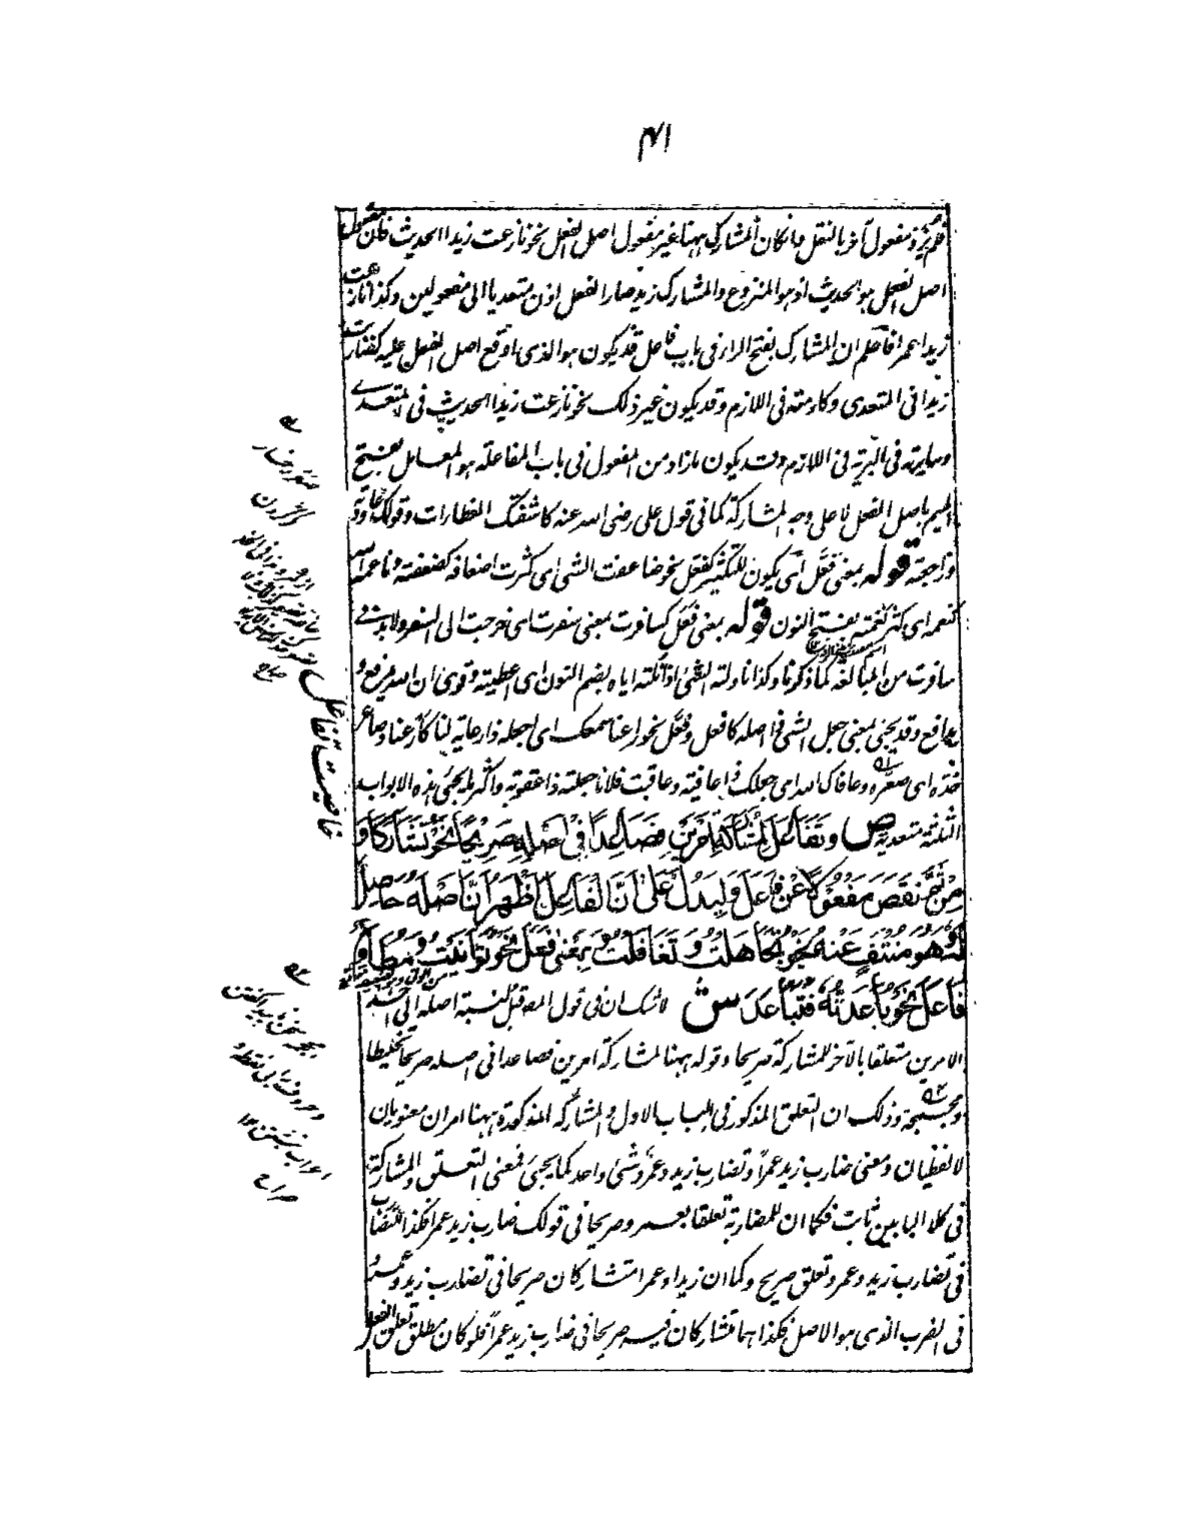 ۴۱
فلم یزد مفعول آخر بالنقل وانکان المشارک ههنا غیر مفعول اصل الفعل نحو نازعت زیدا الحدیث فان مفعول
اصل الفعل هو الحدیث اذ هو المنزوع والمشارک زید صار الفعل اذن متعدیا الی مفعولین وکذا نازعت
زیدا عمرا فاعلم ان المشارک بفتح الراء فی باب فاعل قد یکون هو الذی اوقع اصل الفعل علیه کضاربت
زیدا فی المتعدی وکارمته فی اللازم وقد یکون غیر ذلک نحو نازعت زیدا الحدیث فی المتعدی
وسایرته فی البریة فی اللازم وقد یکون ما زاد من المفعول فی باب المفاعلة هو المعامل بفتح
المیم باصل الفعل لا علی وجه المشارکة کما فی قول علی رضی الله عنه کاشفتک الغطاءات وقولک عاودته
وراجعته قوله بمعنی فعّل ای یکون للتکثیر کفعّل نحو ضاعفت الشیء ای کثرت اضعافه کضعفته وناعمه الله
کنعمه ای کثر نعمته بفتح النون قوله بمعنی فعل کسافرت بمعنی سفرت ای خرجت الی السفر ولابد فی
سافرت من المبالغة کما ذکرنا وکذا ناولته الشیء اذا نلته ایاه بضم النون ای اعطیته وقرئ ان الله یدفع و
یدافع وقد یجئ بمعنی جعل الشیء ذا اصله کافعل وفعّل نحو راعنا سمعک ای اجعله ذا رعایة لنا کأرعنا وصاعر
خده ای صعّره وعافاک الله ای جعلک ذا عافیة وعاقبت فلانا جعلته ذا عقوبة واکثر ما یجئ هذه الابواب
الثلثة متعدیة ص وَتَفَاعَلَ لِمُشَارَکَةِ أَمْرَیْنِ فَصَاعِدًا فِیْ أَصْلِهِ صَرِیْحًا نَحْوُ تَشَارَکَا وَ
مِنْ ثَمَّ نَقَصَ مَفْعُوْلًا عَنْ فَاعَلَ وَلِیَدُلَّ عَلٰی أَنَّ الْفَاعِلَ أَظْهَرَ أَنَّ أَصْلَهُ حَاصِلٌ
لَهُ وَهُوَ مُنْتَفٍ عَنْهُ نَحْوُ تَجَاهَلْتُ وَتَغَافَلْتُ وَبِمَعْنٰی فَعَلَ نَحْوُ تَوَانَیْتُ وَمُطَاوِعُ
فَاعَلَ نَحْوُ بَاعَدْتُهُ فَتَبَاعَدَ ش لاشک ان فی قول المص قبل لنسبة اصله الی احد
الامرین متعلقا بالآخر للمشارکة صریحا وقوله ههنا لمشارکة امرین فصاعدا فی اصله صریحا تخلیطا
ومجمجة وذلک ان التعلق المذکور فی الباب الاول والمشارکة المذکورة ههنا امران معنویان
لا لفظیان ومعنی ضارب زید عمراً وتضارب زید وعمرو شیء واحد کما یجئ فمعنی التعلق والمشارکة
فی کلا البابین ثابت فکما ان للمضاربة تعلقا بعمرو صریحا فی قولک ضارب زید عمرا فکذا للتضارب
فی تضارب زید وعمرو تعلق صریح وکما ان زیدا وعمرا متشارکان صریحا فی تضارب زید وعمرو
فی الضرب الذی هو الاصل فکذا هما متشارکان فیه صریحا فی ضارب زید عمراً فلو کان مطلق تعلق الفعل
خاصیت تفاعل
صراح